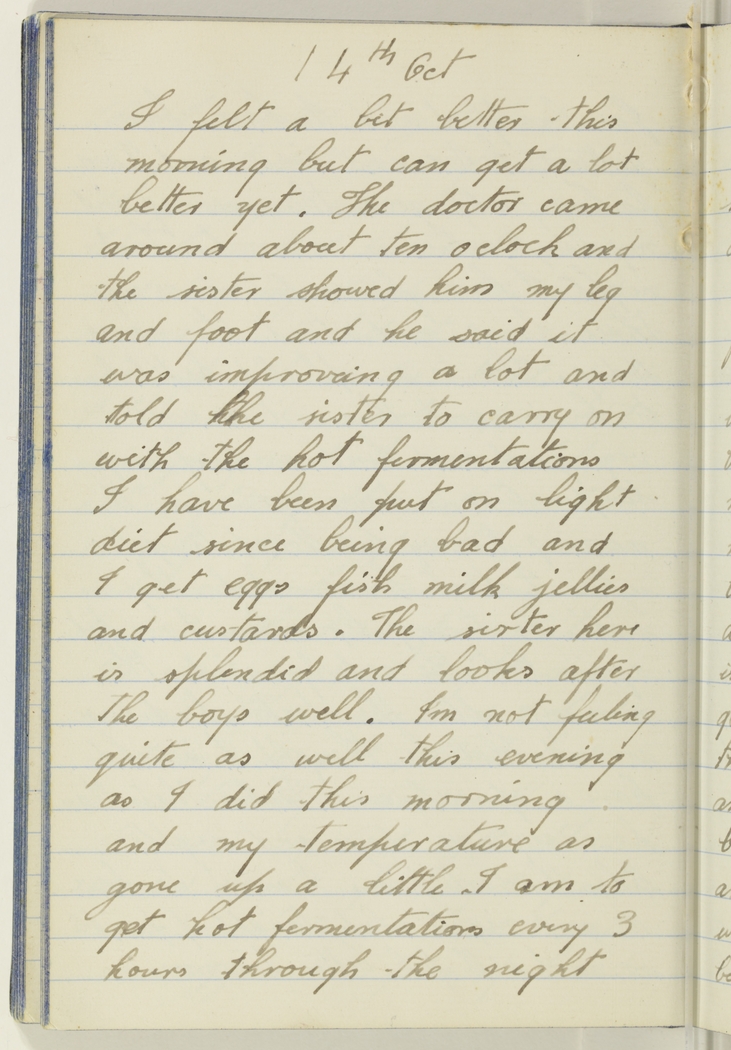 14th Oct
I felt a bit better this
morning but can get a lot
better yet. The doctor came
around about ten oclock and
the sister showed him my leg
and foot and he said it
was improveing a lot and
told the sister to carry on
with the hot fermentations
I have been put on light
diet since being bad and
I get eggs fish milk jellies
and custards. The sister here
is splendid and looks after
the boys well. Im not feeling
quite as well this evening
as I did this morning
and my temperature as
gone up a little. I am to
get hot fermentations every 3
hours through the night